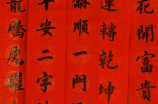 花開富貴
運轉乾坤
福順一門
平安二字
龍騰虎躍